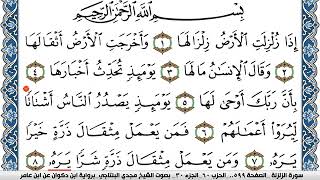 بِسْمِ ٱللَّهِ ٱلرَّحْمَٰنِ ٱلرَّحِيمِ
إِذَا زُلْزِلَتِ ٱلْأَرْضُ زِلْزَالَهَا ١ وَأَخْرَجَتِ ٱلْأَرْضُ أَثْقَالَهَا
٢ وَقَالَ ٱلْإِنسَٰنُ مَالَهَا ٣ يَوْمَئِذٍ تُحَدِّثُ أَخْبَارَهَا ٤
بِأَنَّ رَبَّكَ أَوْحَىٰ لَهَا ٥ يَوْمَئِذٍ يَصْدُرُ ٱلنَّاسُ أَشْتَاتًا
لِّيُرَوْا۟ أَعْمَٰلَهُمْ ٦ فَمَن يَعْمَلْ مِثْقَالَ ذَرَّةٍ خَيْرًا
يَرَهُۥ ٧ وَمَن يَعْمَلْ مِثْقَالَ ذَرَّةٍ شَرًّا يَرَهُۥ ٨
سورة الزلزلة . الصفحة ٥٩٩ . الحزب ٦٠ . الجزء ٣٠ . بصوت الشيخ مجدي البتناجي . برواية ابن ذكوان عن ابن عامر